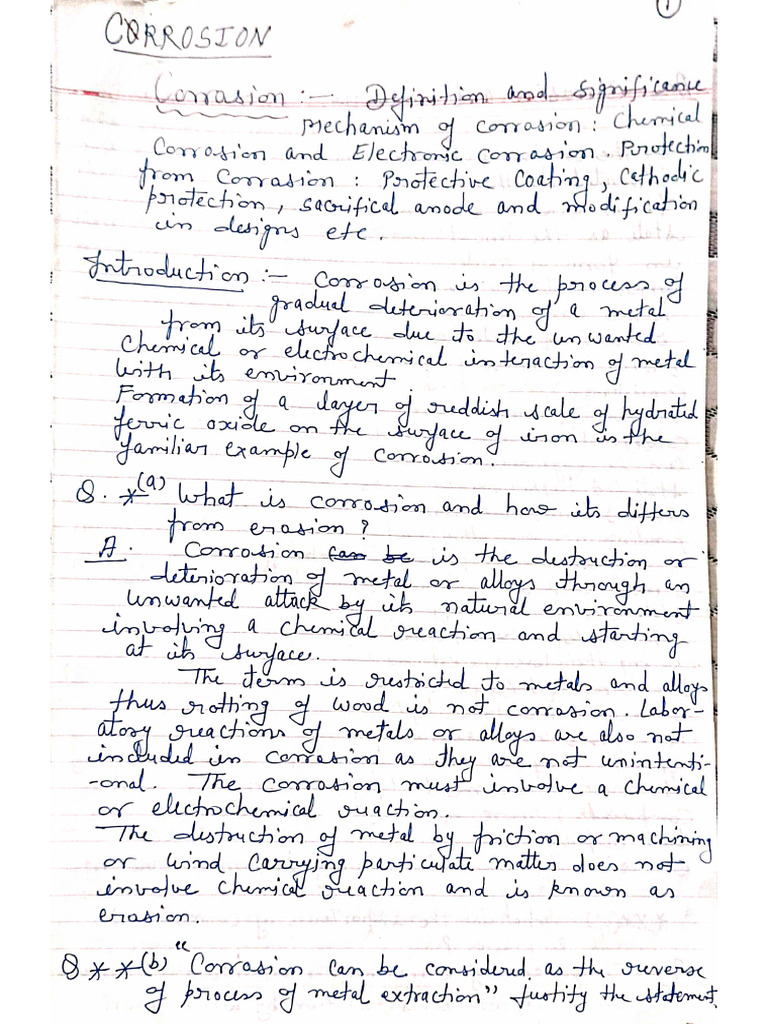 1
CORROSION
Corrasion :- Definition and significance
Mechanism of corrasion : Chemical
Corrosion and Electronic Corrasion. Protection
from Corrasion : Protective Coating, Cathodic
protection, sacrifical anode and modification
in designs etc.
Introduction :- Corrosion is the process of
gradual deterioration of a metal
from its surface due to the unwanted
Chemical or electrochemical interaction of metal
with its environment
Formation of a layer of reddish scale of hydrated
ferric oxide on the surface of iron is the
familiar example of corrosion.
Q. * (a) What is corrosion and how its differs
from erasion ?
A. Corrosion can be is the destruction or
deterioration of metal or alloys through an
unwanted attack by its natural environment
involving a chemical reaction and starting
at its surface.
The term is restricted to metals and alloys
thus rotting of wood is not corrosion. Labor-
atory reactions of metals or alloys are also not
included in corrosion as they are not unintenti-
-onal. The corrosion must involve a chemical
or electrochemical reaction.
The destruction of metal by friction or machining
or wind carrying particulate matter does not
involve chemical reaction and is known as
erasion.
Q * * (b) "Corrasion can be considered as the reverse
of process of metal extraction" Justify the statement.